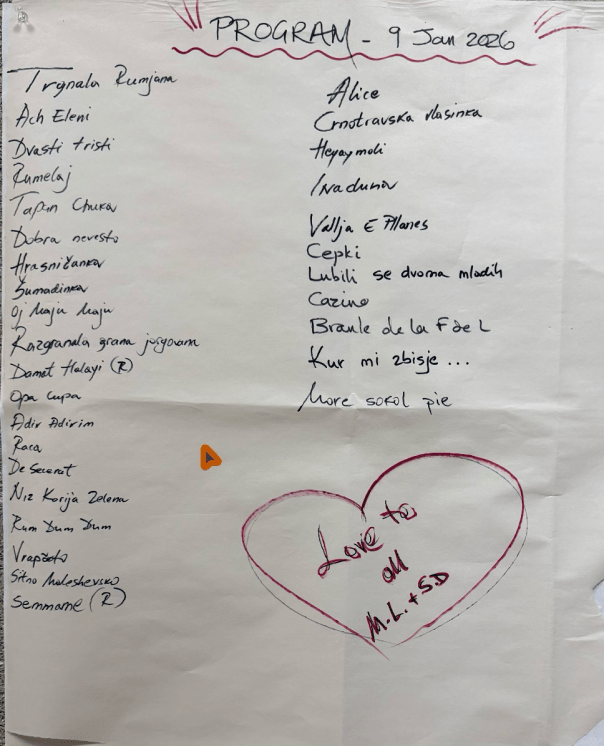 PROGRAM - 9 Jan 2026
Trgnala Rumjana
Ach Eleni
Dvasti tristi
Rumelaj
Tapan Chukav
Dobra nevesto
Hrasničanka
Šumadinka
Oj Maju Maju
Razgranala grana jorgovana
Damat Halayi (R)
Opa cupa
Adir Adirim
Raca
De Secerat
Niz Korija Zelena
Rum Dum Dum
Vrapčeto
Sitno Maleshevsko
Semmame (R)
Alice
Crnotravska vlasinka
Heyaymoli
Inaduna
Vallja E Pllanes
Cepki
Lubili se dvoma mladih
Cazino
Branle de la F de L
Kur mi zbisje ...
More sokol pie
Love to
all
M.L. + S.D